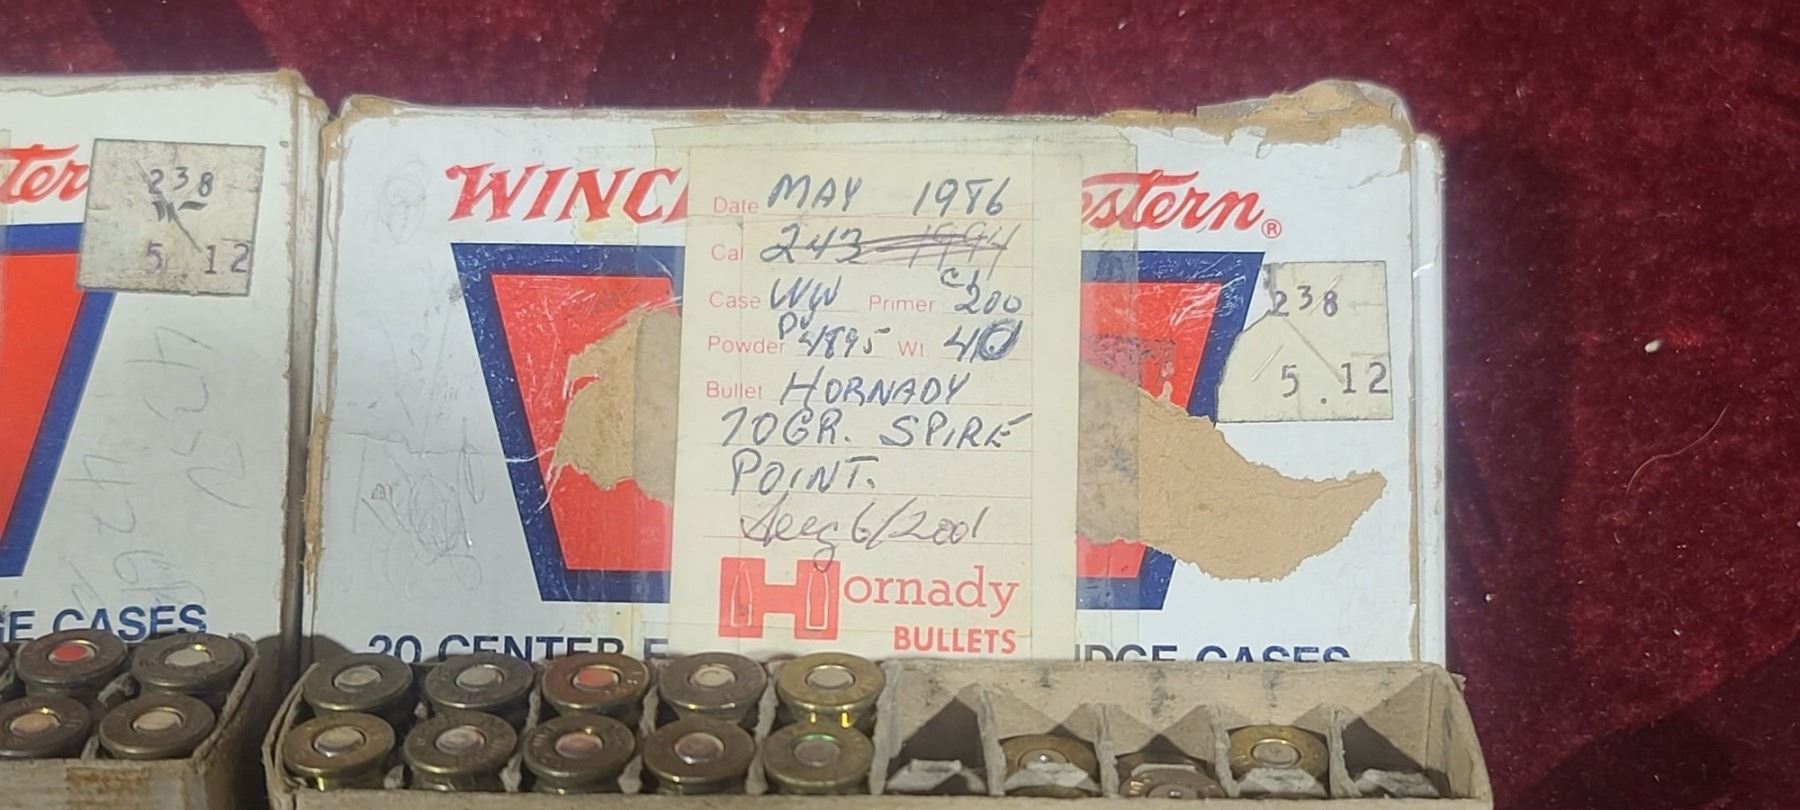 tern
238
5.12
E CASES
WINC
estern®
Date MAY 1986
Cal 243 1994
Case WW Primer CCI 200
Powder DU 4895 Wt 40
Bullet HORNADY
70GR. SPIRE
POINT.
Aug 6/2001
Hornady
BULLETS
238
5.12
20 CENTER F
IDGE CASES